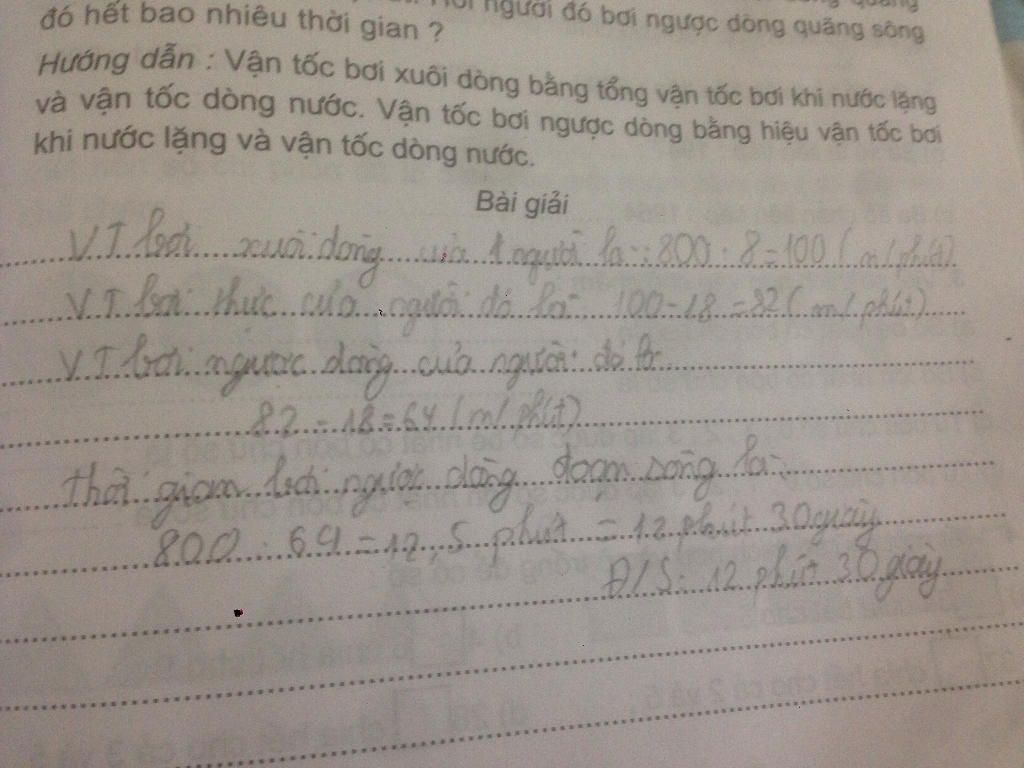 người đó bơi ngược dòng quãng sông
đó hết bao nhiêu thời gian ?
Hướng dẫn : Vận tốc bơi xuôi dòng bằng tổng vận tốc bơi khi nước lặng
và vận tốc dòng nước. Vận tốc bơi ngược dòng bằng hiệu vận tốc bơi
khi nước lặng và vận tốc dòng nước.
Bài giải
VT bơi xuôi dòng của người là : 800 : 8 = 100 ( m/phút)
VT bơi thực của người đó là 100 - 18 = 82 ( m/ phút)
VT bơi ngược dòng của người đó là
82 - 18 = 64 ( m/ phút)
Thời gian bơi ngược dòng đoạn sông là:
800 : 64 = 12,5 phút = 12 phút 30 giây
Đ/S: 12 phút 30 giây